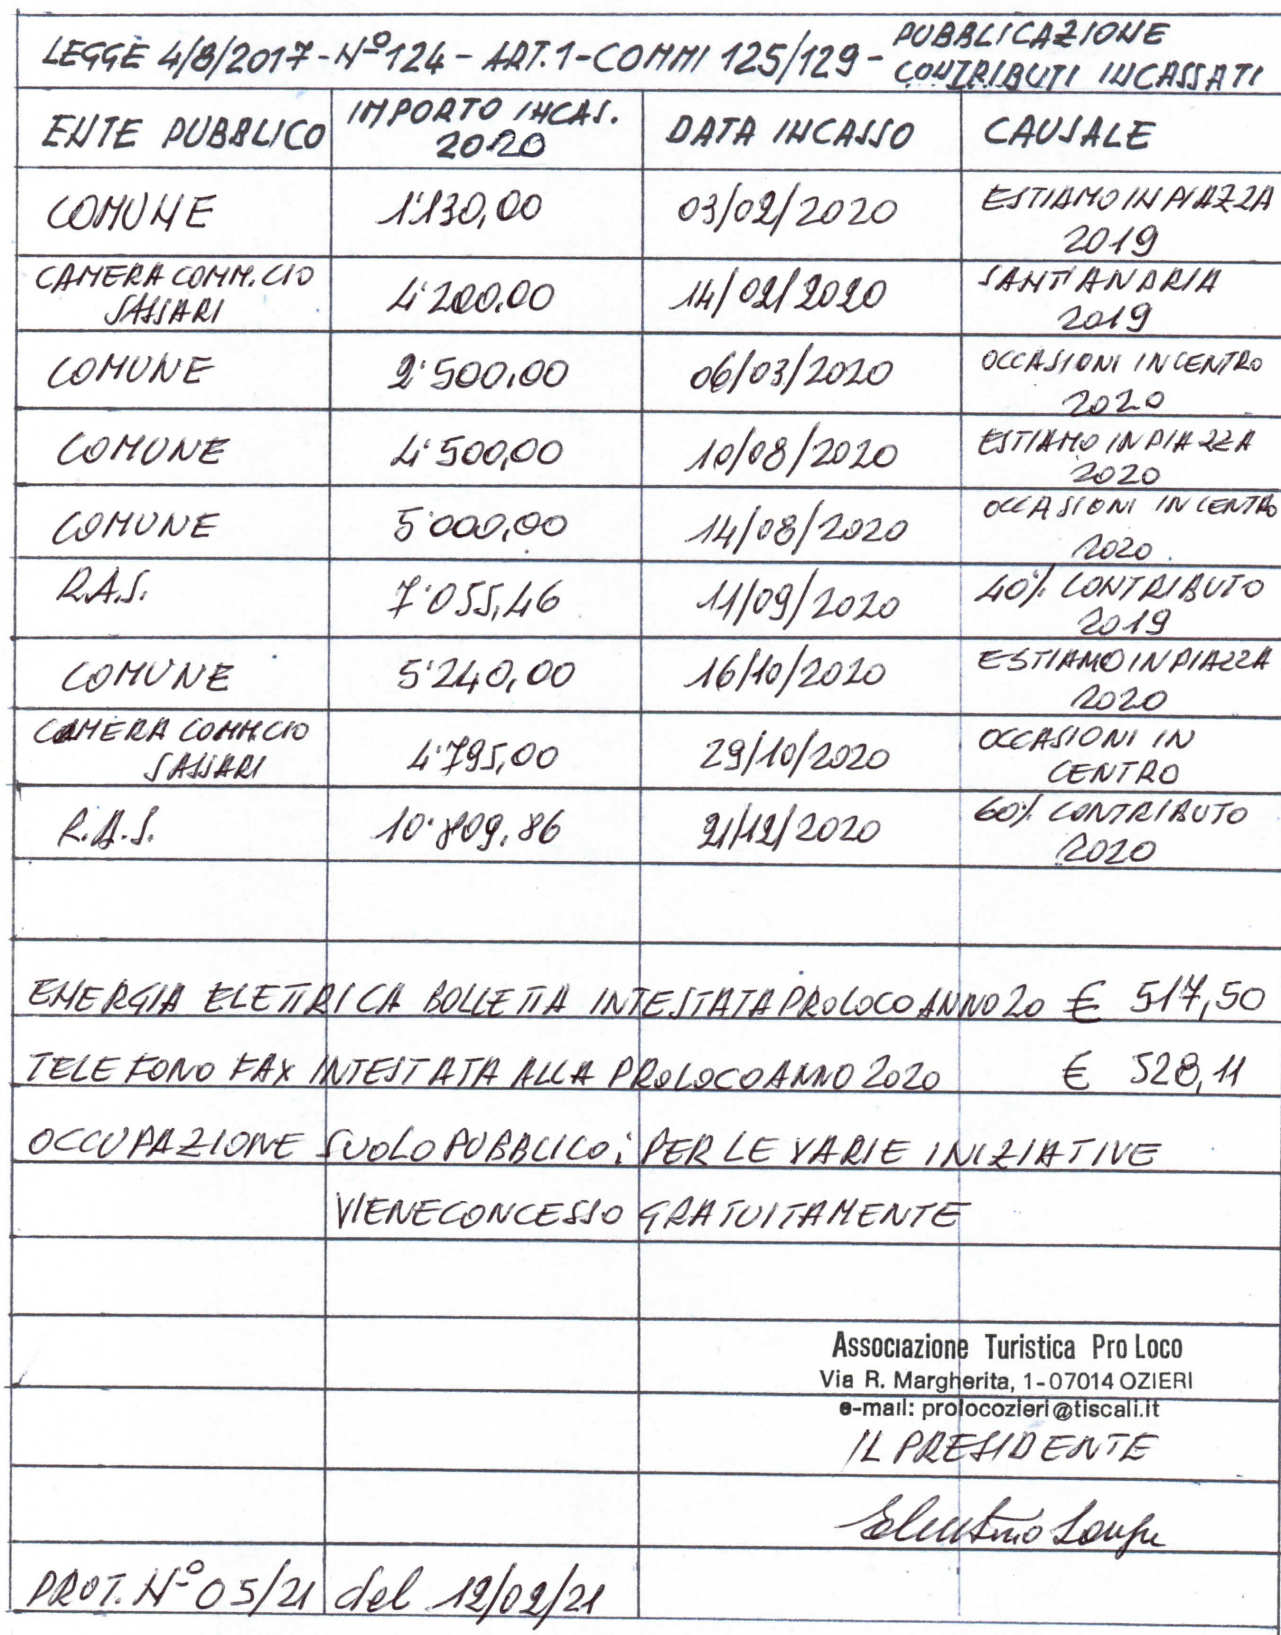 LEGGE 4/8/2017 - Nº 124 - ART. 1 - COMMI 125/129 - PUBBLICAZIONE
CONTRIBUTI INCASSATI
ENTE PUBBLICO IMPORTO INCAS. 2020 DATA INCASSO CAUSALE
COMUNE 1'130,00 03/02/2020 ESTIAMO IN PIAZZA 2019
CAMERA COMM.CIO SASSARI 4'200,00 14/02/2020 SANT'ANDRIA 2019
COMUNE 2'500,00 06/03/2020 OCCASIONI IN CENTRO 2020
COMUNE 4'500,00 10/08/2020 ESTIAMO IN PIAZZA 2020
COMUNE 5'000,00 14/08/2020 OCCASIONI IN CENTRO 2020
R.A.S. 7'055,46 11/09/2020 40% CONTRIBUTO 2019
COMUNE 5'240,00 16/10/2020 ESTIAMO IN PIAZZA 2020
CAMERA COMM.CIO SASSARI 4'795,00 29/10/2020 OCCASIONI IN CENTRO
R.A.S. 10'809,86 21/12/2020 60% CONTRIBUTO 2020
ENERGIA ELETTRICA BOLLETTA INTESTATA PROLOCO ANNO 20 € 517,50
TELEFONO FAX INTESTATA ALLA PROLOCO ANNO 2020 € 528,11
OCCUPAZIONE SUOLO PUBBLICO: PER LE VARIE INIZIATIVE
VIENE CONCESSO GRATUITAMENTE
Associazione Turistica Pro Loco
Via R. Margherita, 1 - 07014 OZIERI
e-mail: prolocozieri@tiscali.it
IL PRESIDENTE
PROT. Nº 05/21 del 12/02/21